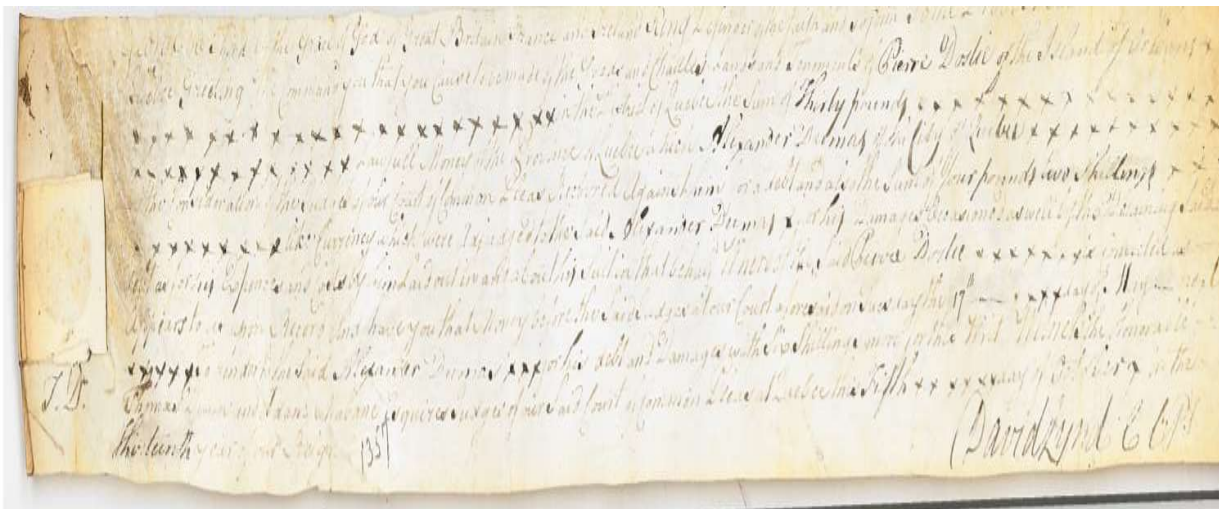 George the Third by the Grace of God of Great Britain France and Ireland King Defender of the Faith and so forth
Quebec Greeting We Command you that you Cause to be made of the Goods and Chattels Lands and Tenements of Pierre Doslie of the Island of Orleans x
x x x x x x x x x x x x x x x x x x x in the District of Quebec the Sum of Thirty pounds x x x x x x x x x x x x x x
x x x x x x x x x x x x Lawfull Money of the Province of Quebec which Alexander Dumas of the City of Quebec x x x x x x x x x
of the Consideration of the Judges of our Court of Common Pleas Recovered Against him for a debt and also the Sum of Four pounds two Shillings x x x
x x x x x x x x like Currency which were Adjudged to the said Alexander Dumas x for his Damages Occasioned as well by the Detaining said
debt as for his Expences and Costs by him laid out in and about his Suit in that behalf whereof the said Pierre Doslie x x x x x x x x convicted as
appears to us upon Record And have you that Money before the said Judges at our Court aforesaid on the 17th x x x day of May next
x x x x x to render to the said Alexander Dumas x x x for his debt and Damages with Six Shillings more for this Writ Witness the Honorable
Thomas Dunn and Esquires Judges of our Said Court of Common Pleas at Quebec this Fifth x x x x x day of x in the
thirteenth year of our Reign
1357
David Lynd C C P
J. D.